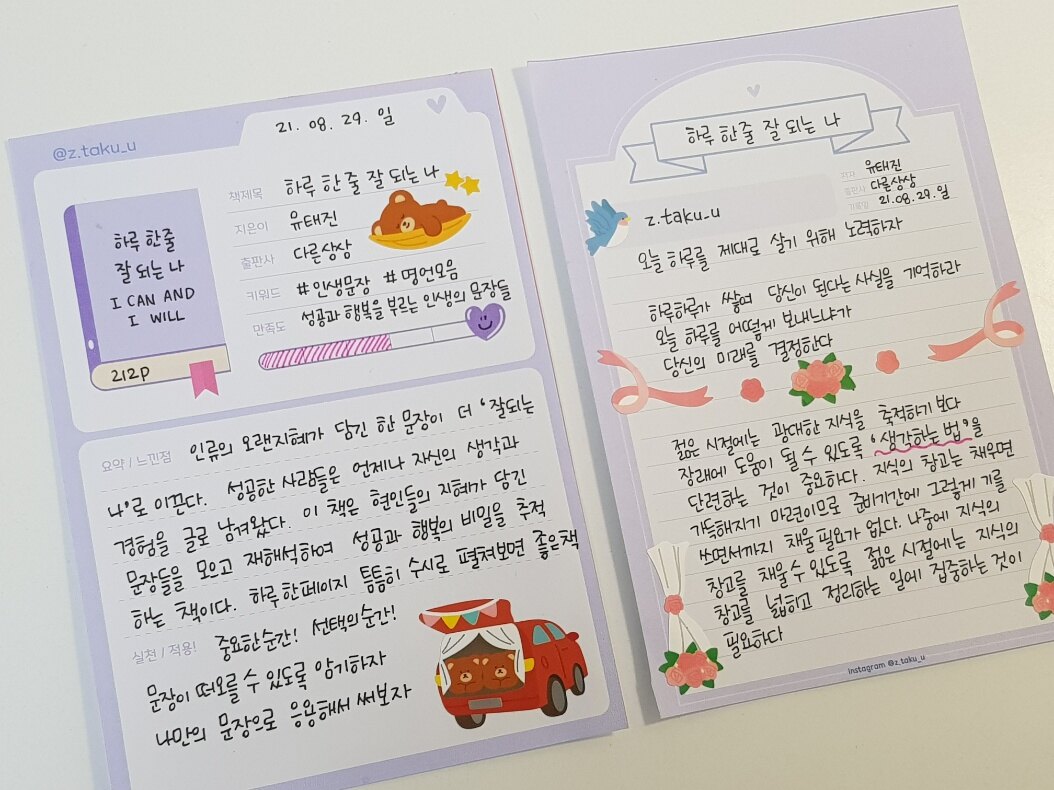 @z.taku_u
21. 08. 29. 일
하루 한 줄
잘 되는 나
I CAN AND
I WILL
212p
책제목 하루 한 줄 잘 되는 나
지은이 유태진
출판사 다른상상
키워드 #인생문장 #명언모음
만족도 성공과 행복을 부르는 인생의 문장들
요약 / 느낀점 인류의 오랜지혜가 담긴 한 문장이 더 '잘되는
나'로 이끈다. 성공한 사람들은 언제나 자신의 생각과
경험을 글로 남겨왔다. 이 책은 현인들의 지혜가 담긴
문장들을 모으고 재해석하여 성공과 행복의 비밀을 추적
하는 책이다. 하루 한페이지 틈틈히 수시로 펼쳐보면 좋은책
실천 / 적용! 중요한순간! 선택의순간!
문장이 떠오를 수 있도록 암기하자
나만의 문장으로 응용해서 써보자
하루 한 줄 잘 되는 나
저자 유태진
출판사 다른상상
기록일 21.08.29.일
z.taku_u
오늘 하루를 제대로 살기 위해 노력하자
하루하루가 쌓여 당신이 된다는 사실을 기억하라
오늘 하루를 어떻게 보내느냐가
당신의 미래를 결정한다
젊은 시절에는 광대한 지식을 축적하기 보다
장래에 도움이 될 수 있도록 '생각하는 법'을
단련하는 것이 중요하다. 지식의 창고는 채우면
가득해지기 마련이므로 준비기간에 그렇게 기를
쓰면서까지 채울 필요가 없다. 나중에 지식의
창고를 채울 수 있도록 젊은 시절에는 지식의
창고를 넓히고 정리하는 일에 집중하는 것이
필요하다
instagram @z.taku_u